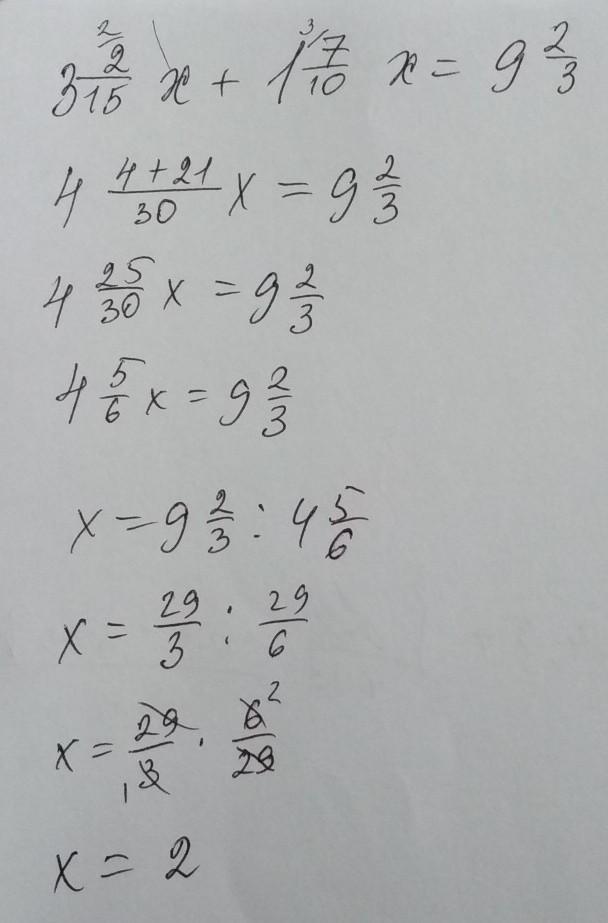 3 2/15 ² x + 1 7/10 ³ x = 9 2/3
4 (4+21)/30 x = 9 2/3
4 25/30 x = 9 2/3
4 5/6 x = 9 2/3
x = 9 2/3 : 4 5/6
x = 29/3 : 29/6
x = 29/3 ₁ · 6/29 ²
x = 2